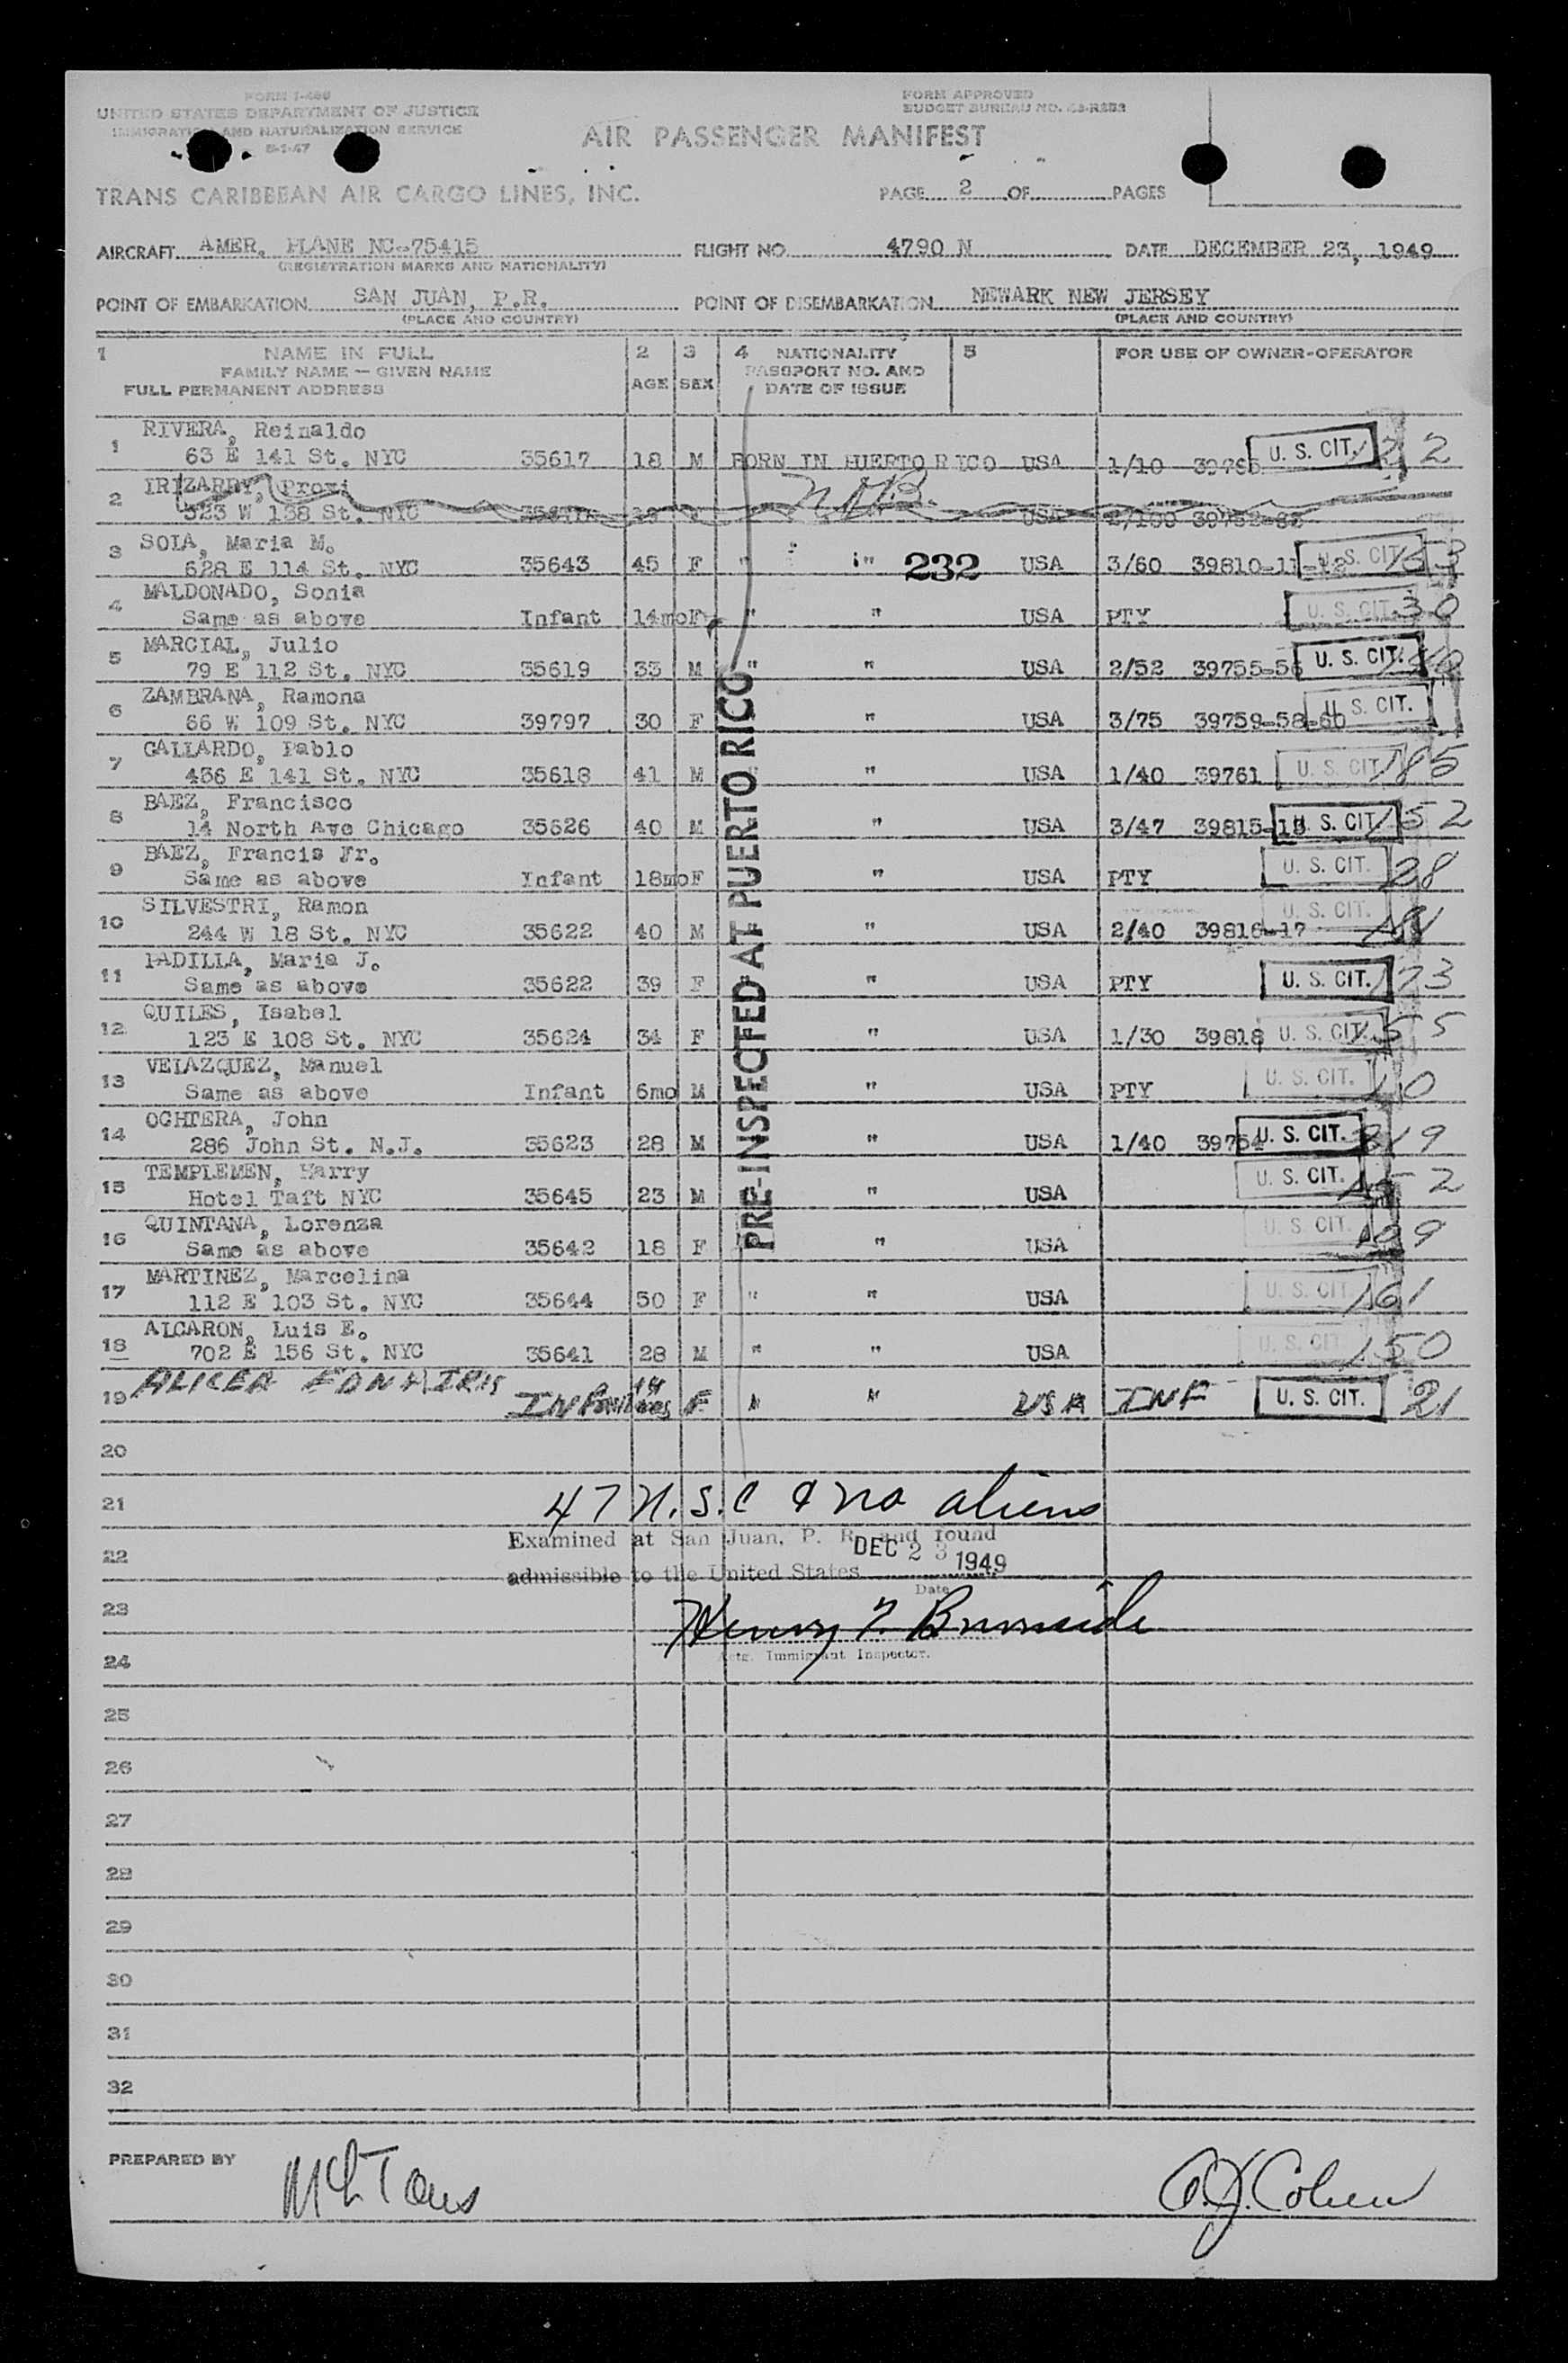 FORM I-466
UNITED STATES DEPARTMENT OF JUSTICE
IMMIGRATION AND NATURALIZATION SERVICE
8-1-47
FORM APPROVED
BUDGET BUREAU NO.
AIR PASSENGER MANIFEST
TRANS CARIBBEAN AIR CARGO LINES, INC.
PAGE 2 OF PAGES
AIRCRAFT AMER. PLANE NC-75415 FLIGHT NO 4790 N DATE DECEMBER 23, 1949
(REGISTRATION MARKS AND NATIONALITY)
POINT OF EMBARKATION SAN JUAN, P.R. POINT OF DISEMBARKATION NEWARK NEW JERSEY
(PLACE AND COUNTRY) (PLACE AND COUNTRY)
1 NAME IN FULL 2 3 4 NATIONALITY 5 FOR USE OF OWNER-OPERATOR
FAMILY NAME — GIVEN NAME AGE SEX PASSPORT NO. AND
FULL PERMANENT ADDRESS DATE OF ISSUE
1 RIVERA, Reinaldo
63 E 141 St. NYC 35617 18 M BORN IN PUERTO RICO USA 1/10 U. S. CIT.
2 IRIZARRY, Provi
323 W 138 St. NYC USA
3 SOIA, Maria M.
628 E 114 St. NYC 35643 45 F " " 232 USA 3/60 39810-11-12 U. S. CIT. 163
4 MALDONADO, Sonia
Same as above Infant 14mo F " " USA PTY U. S. CIT. 30
5 MARCIAL, Julio
79 E 112 St. NYC 35619 33 M " " USA 2/52 39755-56 U. S. CIT.
6 ZAMBRANA, Ramona
66 W 109 St. NYC 39797 30 F " USA 3/75 39759-58-60 U. S. CIT.
7 GALLARDO, Pablo
436 E 141 St. NYC 35618 41 M " USA 1/40 39761 U. S. CIT. 185
8 BAEZ, Francisco
14 North Ave Chicago 35626 40 M " USA 3/47 39815- U. S. CIT. 152
9 BAEZ, Francis Jr.
Same as above Infant 18mo F " USA PTY U. S. CIT. 28
10 SILVESTRI, Ramon
244 W 18 St. NYC 35622 40 M " USA 2/40 39816-17 U. S. CIT.
11 PADILLA, Maria J.
Same as above 35622 39 F " USA PTY U. S. CIT. 173
12 QUILES, Isabel
123 E 108 St. NYC 35624 34 F " USA 1/30 39818 U. S. CIT. 155
13 VELAZQUEZ, Manuel
Same as above Infant 6mo M " USA PTY U. S. CIT. 10
14 OCHTERA, John
286 John St. N.J. 35623 28 M " USA 1/40 39754 U. S. CIT. 219
15 TEMPLEMEN, Harry
Hotel Taft NYC 35645 23 M " USA U. S. CIT. 152
16 QUINTANA, Lorenza
Same as above 35642 18 F " USA U. S. CIT. 109
17 MARTINEZ, Marcelina
112 E 103 St. NYC 35644 50 F " " USA U. S. CIT. 161
18 ALCARON, Luis E.
702 E 156 St. NYC 35641 28 M " " USA U. S. CIT. 150
19 ALICEA IRIS F " " USA INF U. S. CIT. 21
PRE-INSPECTED AT PUERTO RICO
20
21 47 U.S.C & no aliens
Examined at San Juan, P. R. and found
22 DEC 23 1949
admissible to the United States
Date
23 Henry F. Burnside
24 Actg. Immigrant Inspector.
25
26
27
28
29
30
31
32
PREPARED BY
Cohen